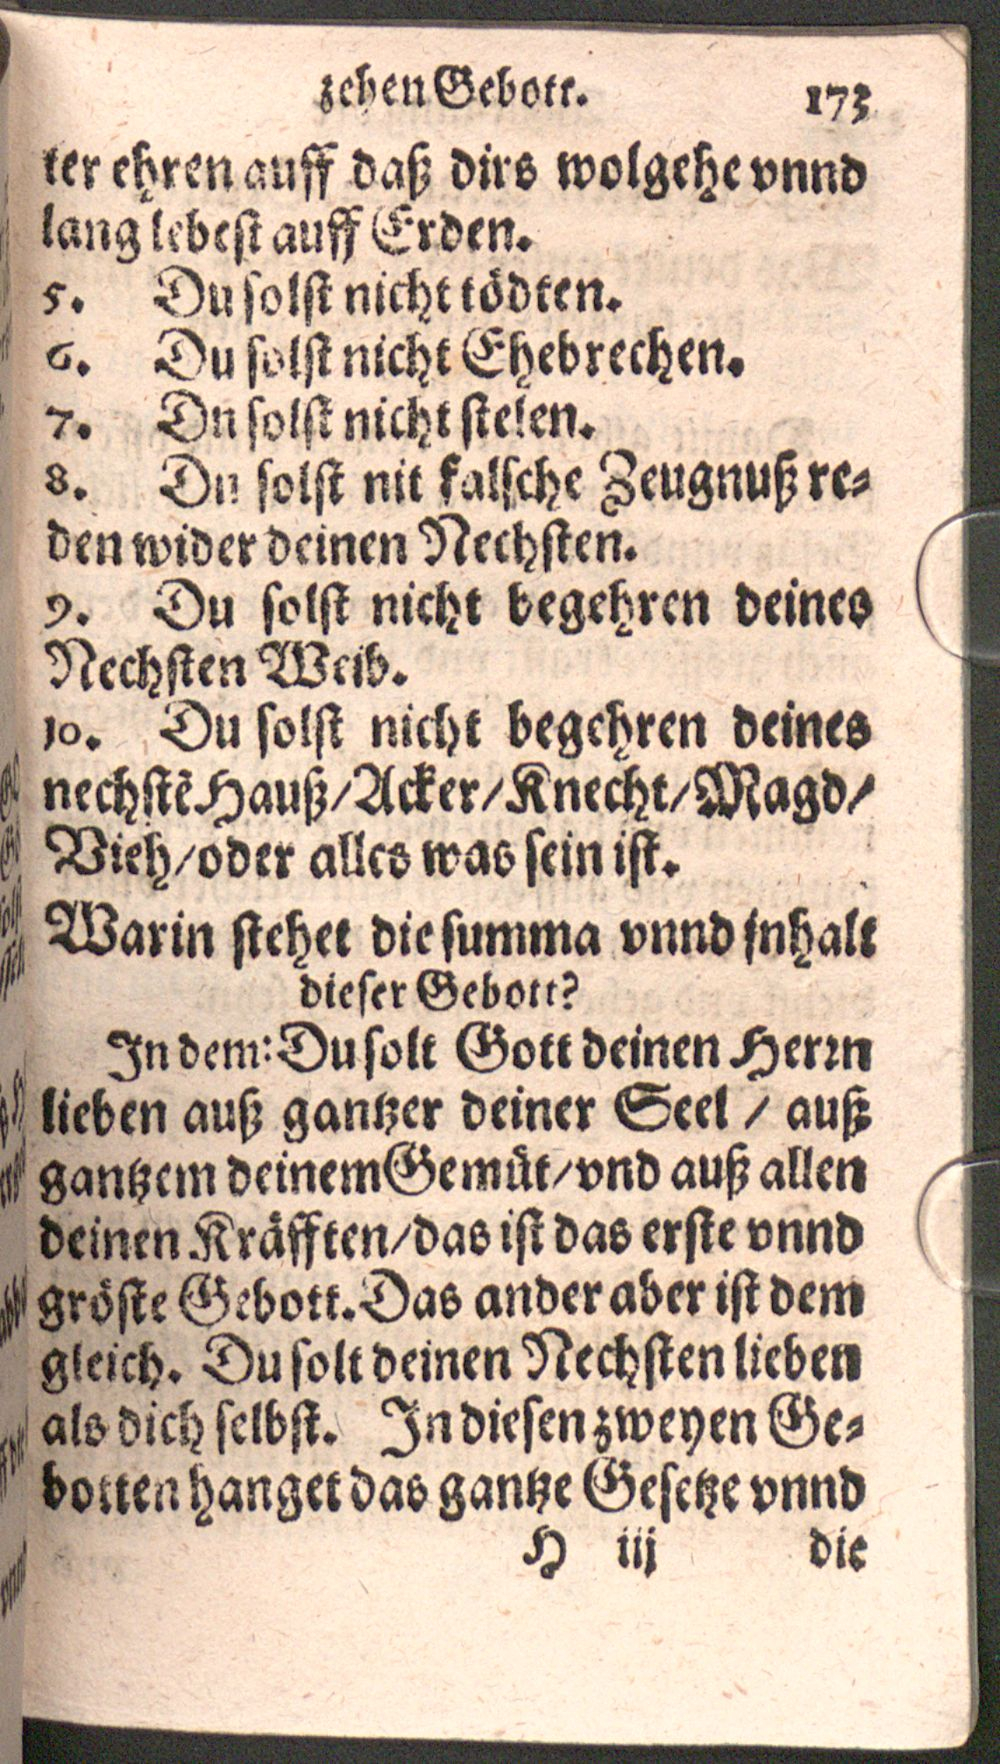 zehen Gebott. 173
ter ehren auff daß dirs wolgehe vnnd
lang lebest auff Erden.
5. Du solst nicht tödten.
6. Du solst nicht Ehebrechen.
7. Dn solst nicht stelen.
8. Du solst nit falsche Zeugnuß re-
den wider deinen Nechsten.
9. Du solst nicht begehren deines
Nechsten Weib.
10. Du solst nicht begehren deines
nechstē Hauß/Acker/Knecht/Magd/
Vieh/oder alles was sein ist.
Warin stehet die summa vnnd jnhalt
dieser Gebott?
In dem: Du solt Gott deinen Herrn
lieben auß gantzer deiner Seel / auß
gantzem deinem Gemüt/vnd auß allen
deinen Kräfften/das ist das erste vnnd
gröste Gebott. Das ander aber ist dem
gleich. Du solt deinen Nechsten lieben
als dich selbst. In diesen zweyen Ge-
botten hanget das gantze Gesetze vnnd
H iij die